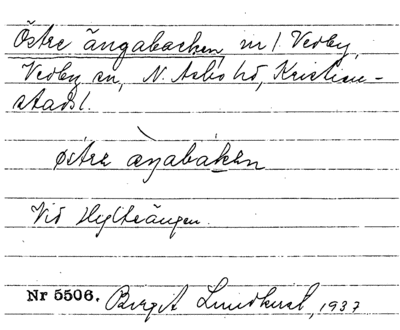 Östre ängabacken, nr 1 Vedby,
Vedby sn, N. Åsbo hd, Kristian-
stads l.
østrə æŋabakən
Vid Hylteängen.
Nr 5506. Birgit Lundkvist, 1937